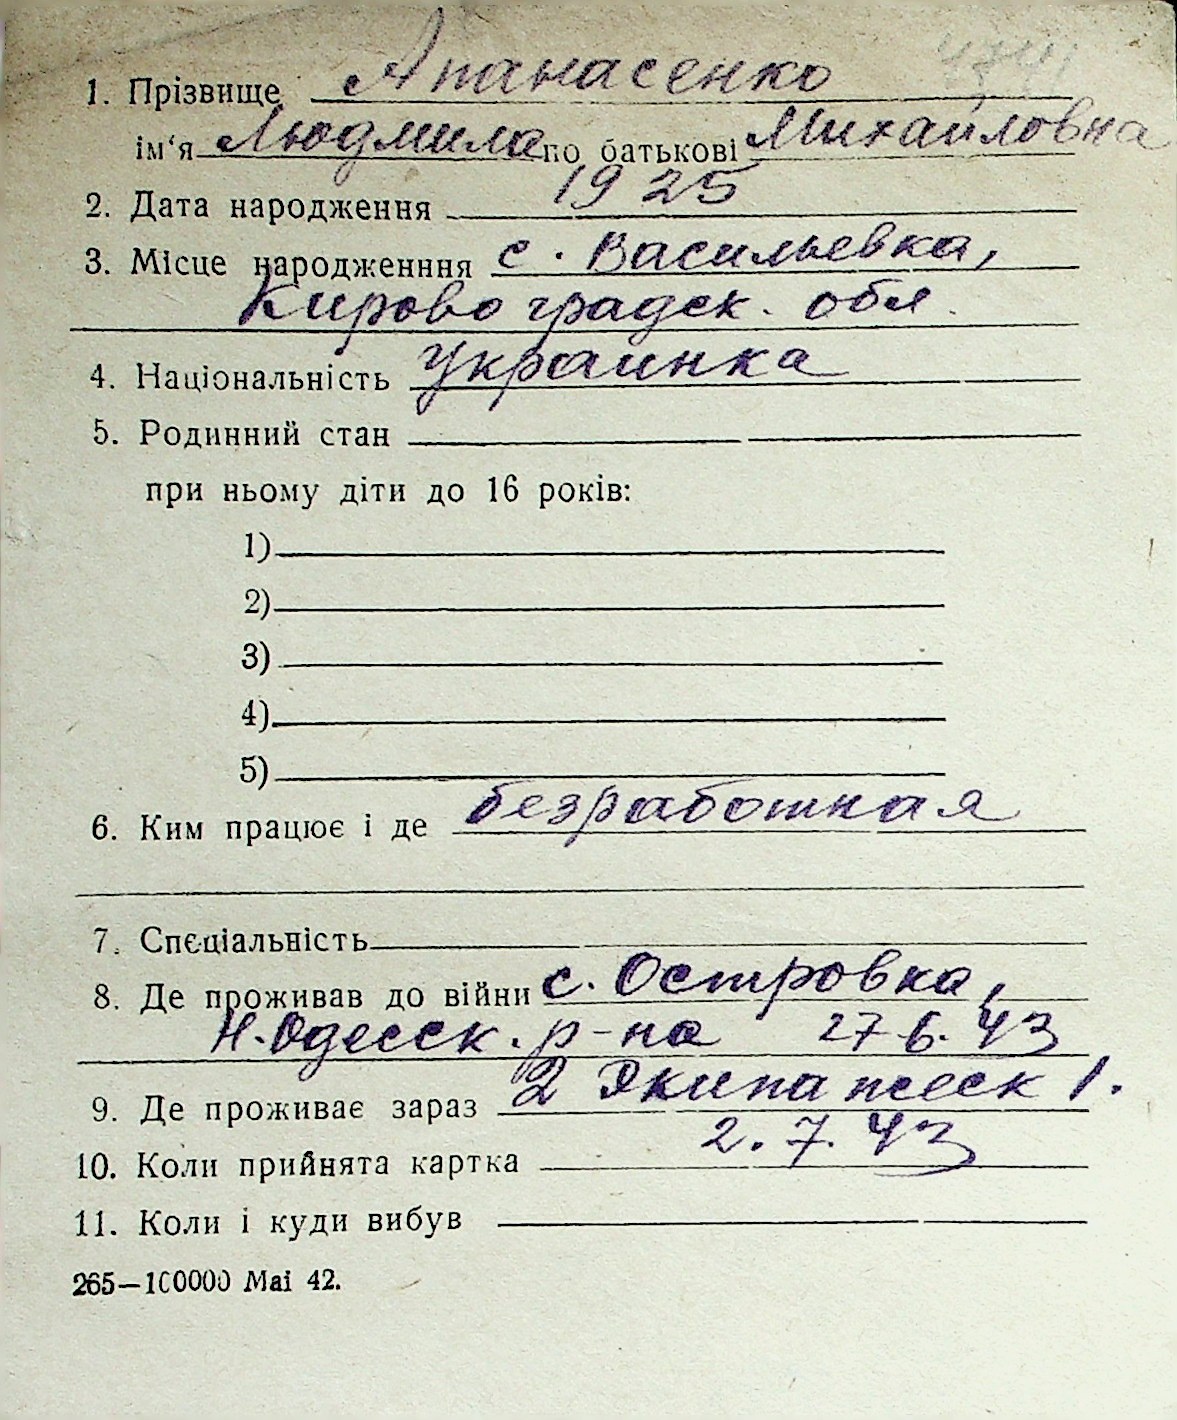 1. Прізвище Апанасенко
ім‘я Людмила по батькові Михайловна
2. Дата народження 1925
3. Місце народженння с. Васильевка,
Кировоградск. обл.
4. Національність Украинка
5. Родинний стан
при ньому діти до 16 років:
1)
2)
3)
4)
5)
6. Ким працює і де безработная
7. Спєціальність
8. Де проживав до війни с. Островка,
Н. Одесск. р-на 27 6. 43
9. Де проживає зараз 2 Экипажеск 1.
10. Коли прийнята картка 2. 7. 43
11. Коли і куди вибув
265—100000 Mai 42.